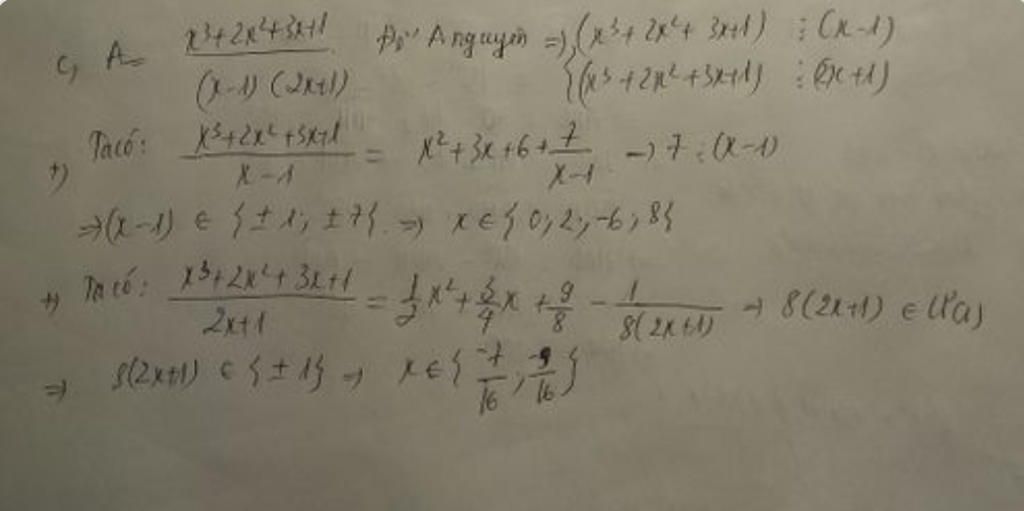 c, A = \frac{x³+2x²+3x+1}{(x-1)(2x+1)} Để A nguyên => { (x³+2x²+3x+1) ⋮ (x-1)
(x³+2x²+3x+1) ⋮ (2x+1)
+) Ta có: \frac{x³+2x²+3x+1}{x-1} = x²+3x+6+\frac{7}{x-1} → 7 ⋮ (x-1)
=> (x-1) ∈ {±1; ±7} => x ∈ {0; 2; -6; 8}
+) Ta có: \frac{x³+2x²+3x+1}{2x+1} = \frac{1}{2}x² + \frac{3}{4}x + \frac{9}{8} - \frac{1}{8(2x+1)} → 8(2x+1) ∈ Ư(1)
=> 8(2x+1) ∈ {±1} => x ∈ {\frac{-7}{16}; \frac{-9}{16}}